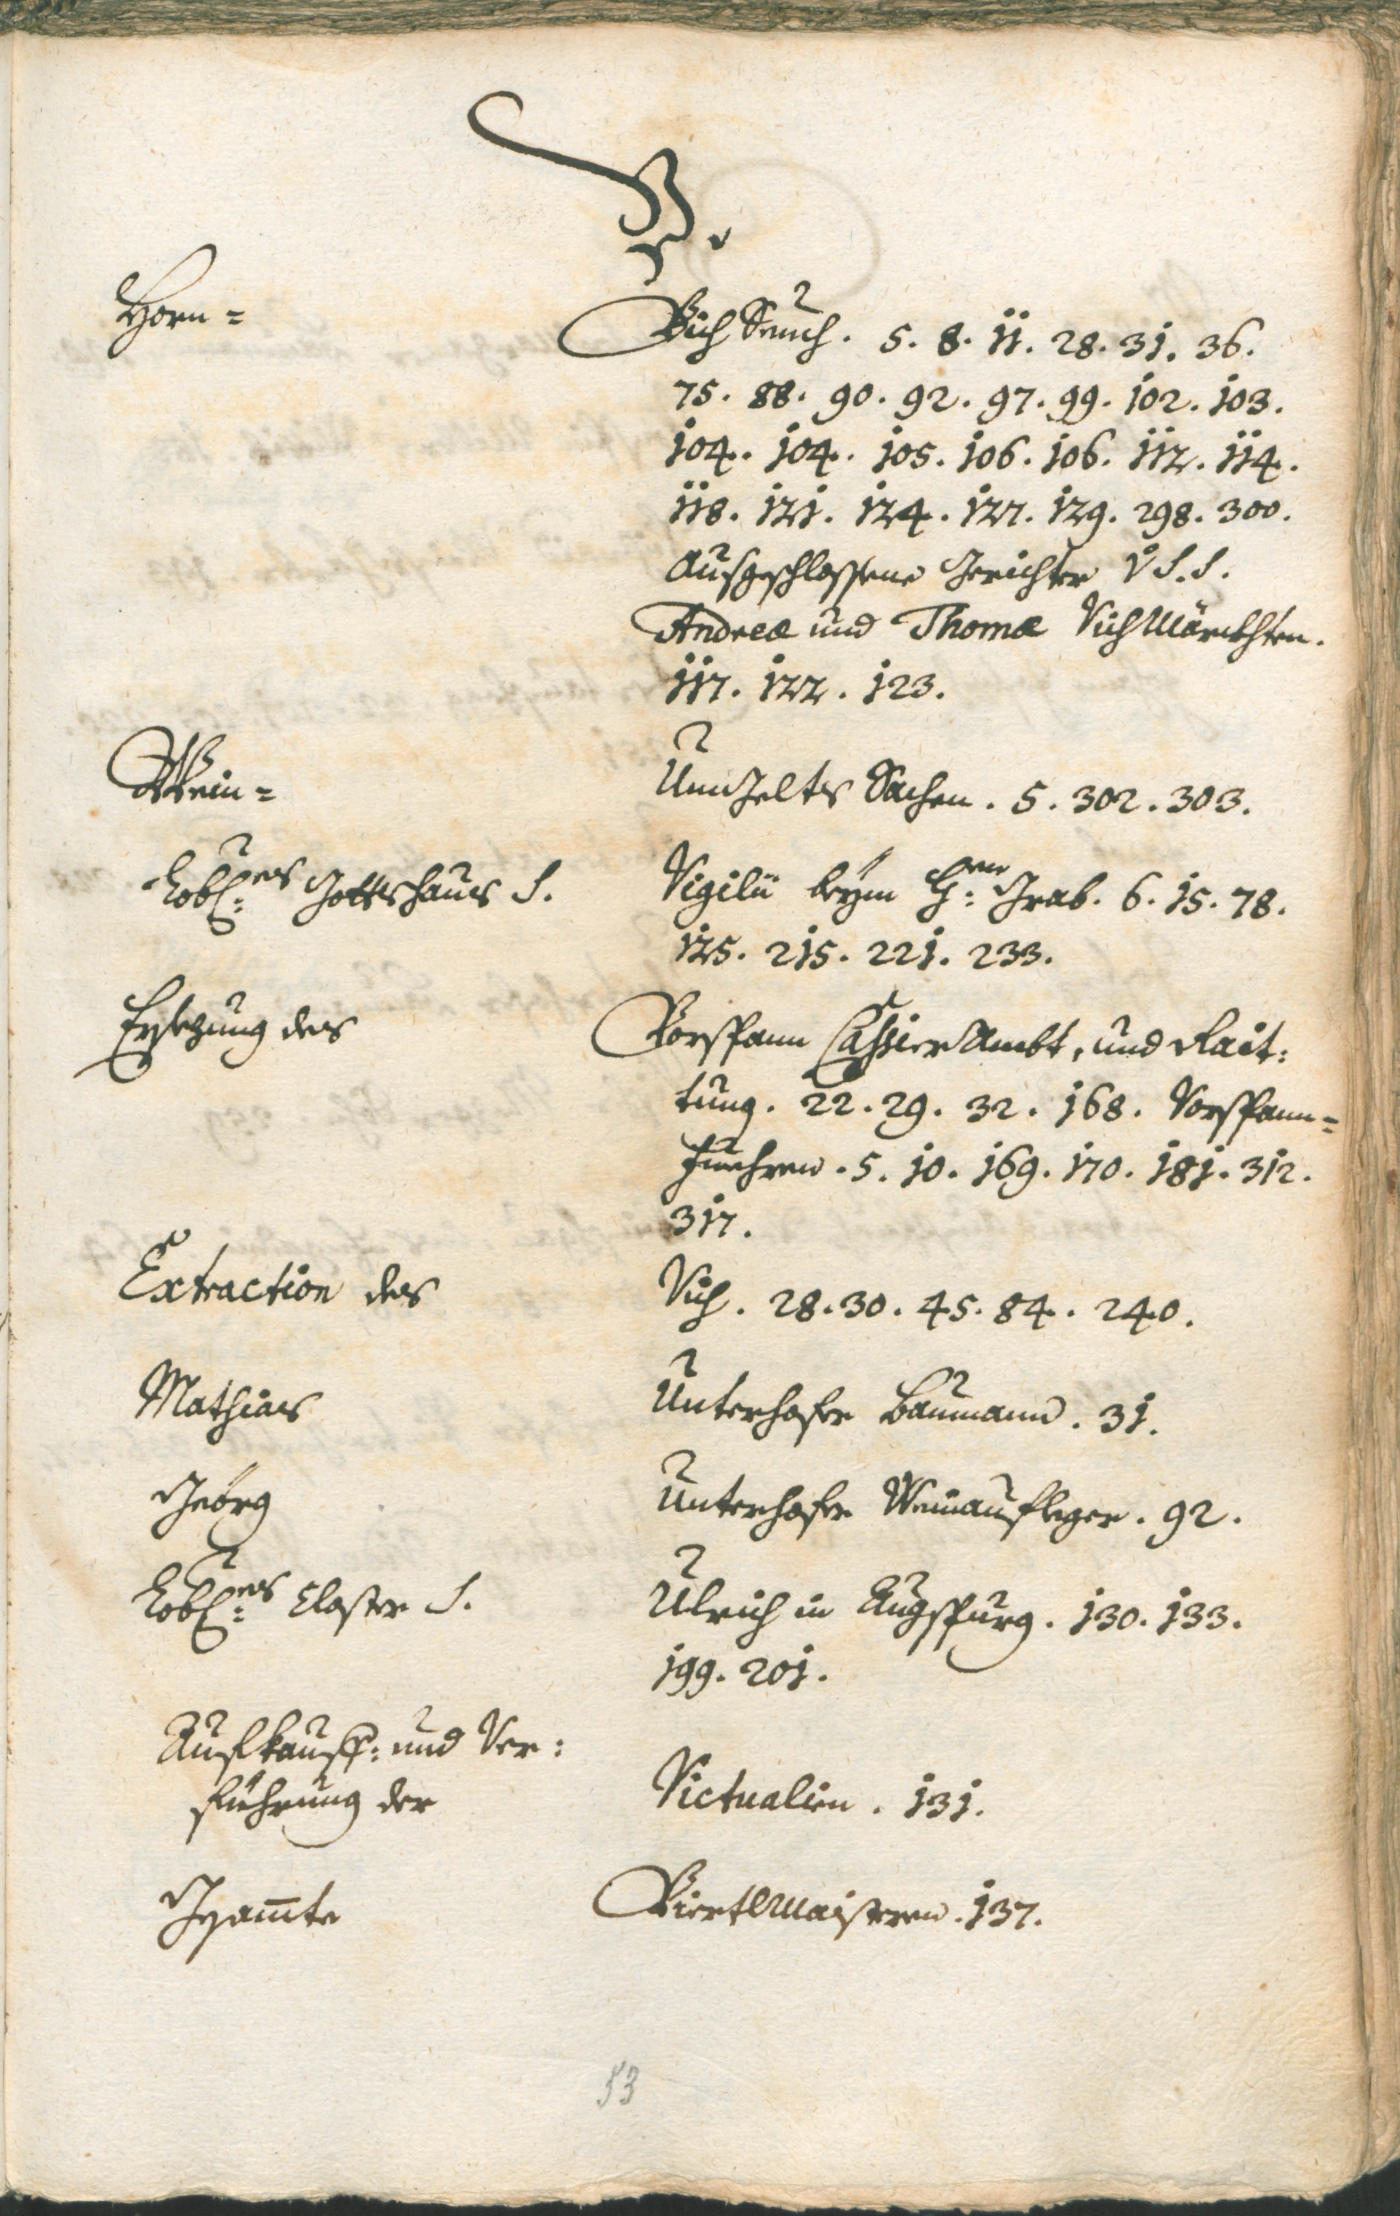 V.
Horn= Vich Seuch. 5. 8. 11. 28. 31. 36.
75. 88. 90. 92. 97. 99. 102. 103.
104. 104. 105. 106. 106. 112. 114.
118. 121. 124. 127. 129. 298. 300.
Ausgeschlossene Gerichter S.S.
Andreæ und Thomæ Vich Märckhten.
117. 122. 123.
Wein= Umgelts Sachen. 5. 302. 303.
Löbl:es Gottshaus S. Vigilii beym H:en Grab. 6. 15. 78.
125. 215. 221. 233.
Ersezung des Vorspann Cassier Ambt, und Rait:
tung. 22. 29. 32. 168. Vorspann=
Fuehren. 5. 10. 169. 170. 181. 312.
317.
Extraction des Vich. 28. 30. 45. 84. 240.
Mathias Unterhofer Baumann. 31.
Geörg Unterhofer Weinaufleger. 92.
Löbl:es Closter S. Ulrich in Augspurg. 130. 133.
199. 201.
Aufkauff: und Ver:
führung der Victualien. 131.
Gesamte Viertlmaistern. 137.
53